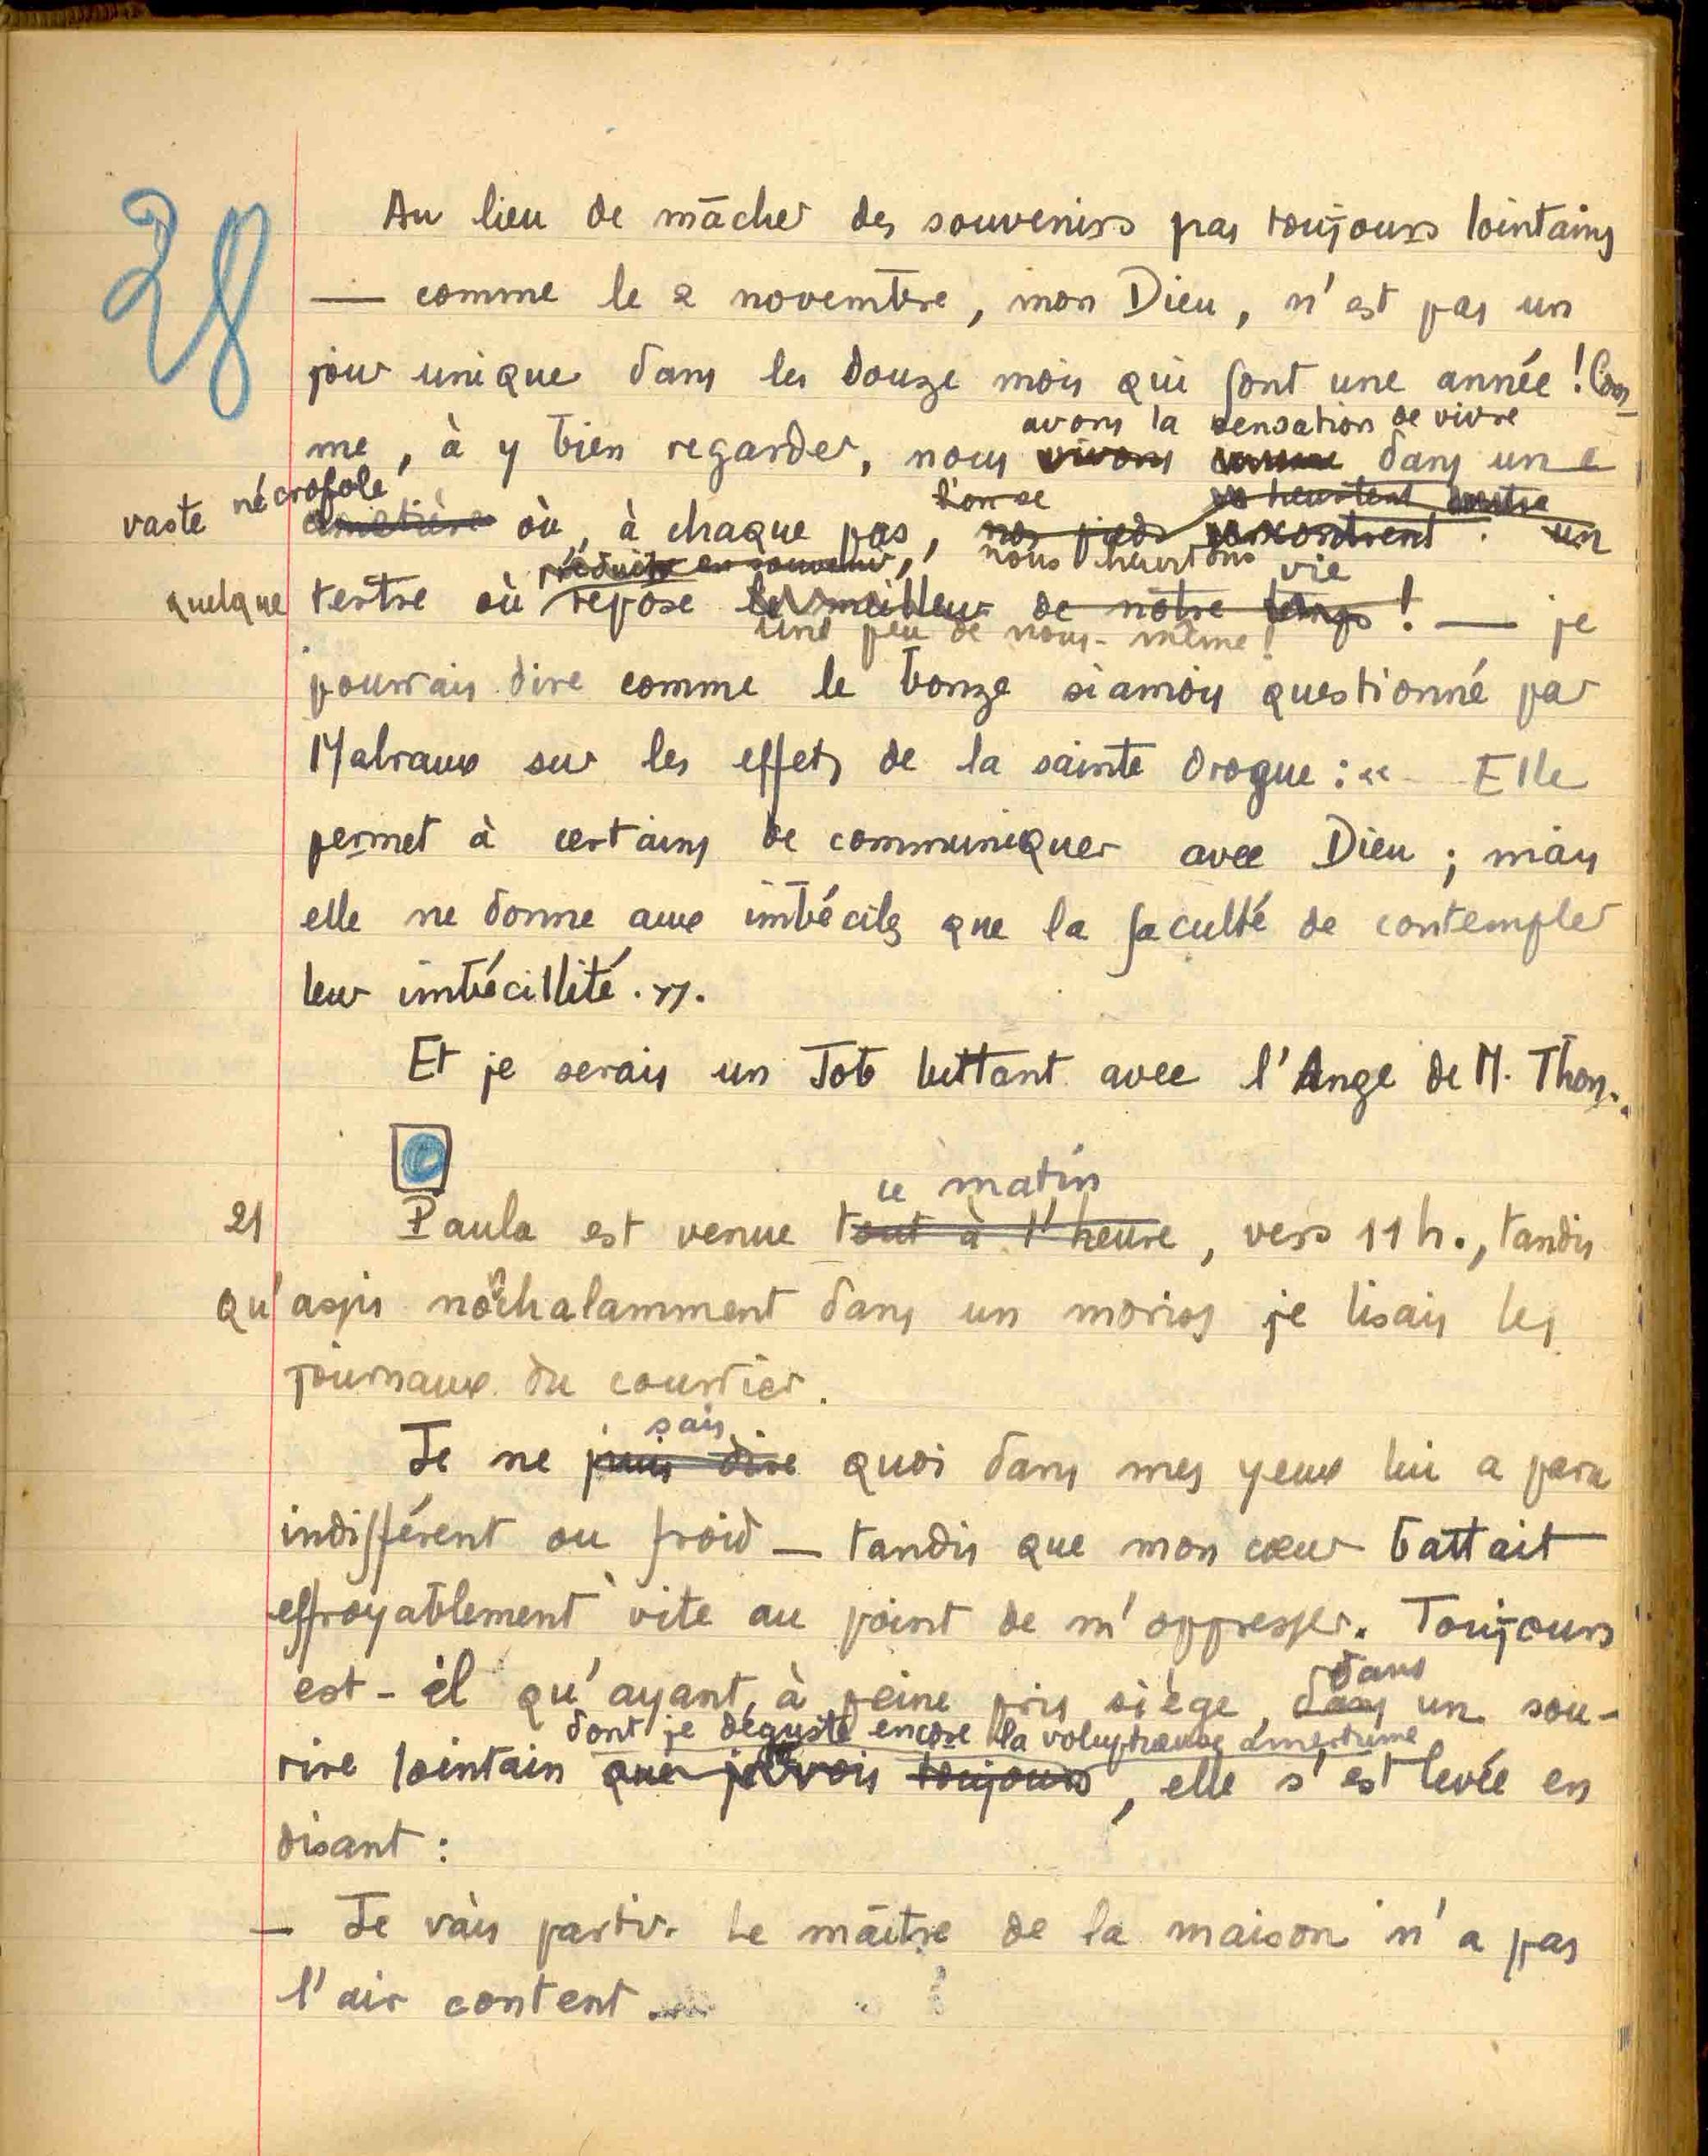 28
Au lieu de mâcher des souvenirs pas toujours lointains
— comme le 2 novembre, mon Dieu, n'est pas un
jour unique dans les douze mois qui font une année ! Com-
avons la sensation de vivre
me, à y bien regarder, nous vivons comme dans une
vaste nécropole
l'on se se heurtent contre
cimetière où, à chaque pas, nos pieds rencontrent un
réduite en souvenir, nous heurtons vie
quelque tertre où repose le meilleur de notre temps ! — je
une peu de nous-même !
pourrais dire comme le bonze siamois questionné par
Malraux sur les effets de la sainte drogue : « Elle
permet à certains de communiquer avec Dieu ; mais
elle ne donne aux imbéciles que la faculté de contempler
leur imbécillité. ».
Et je serais un Job luttant avec l'Ange de M. Thom..
ce matin
21 Paula est venue tout à l'heure, vers 11 h., tandis
qu'assis nonchalamment dans un morris je lisais les
journaux du courrier.
sais
Je ne puis dire quoi dans mes yeux lui a paru
indifférent ou froid — tandis que mon cœur battait
effroyablement vite au point de m'oppresser. Toujours
dans
est-il qu'ayant à peine pris siège, dans un sou-
dont je déguste encore la voluptueuse amertume
rire lointain que je vois toujours, elle s'est levée en
disant :
— Je vais partir. Le maître de la maison n'a pas
l'air content...